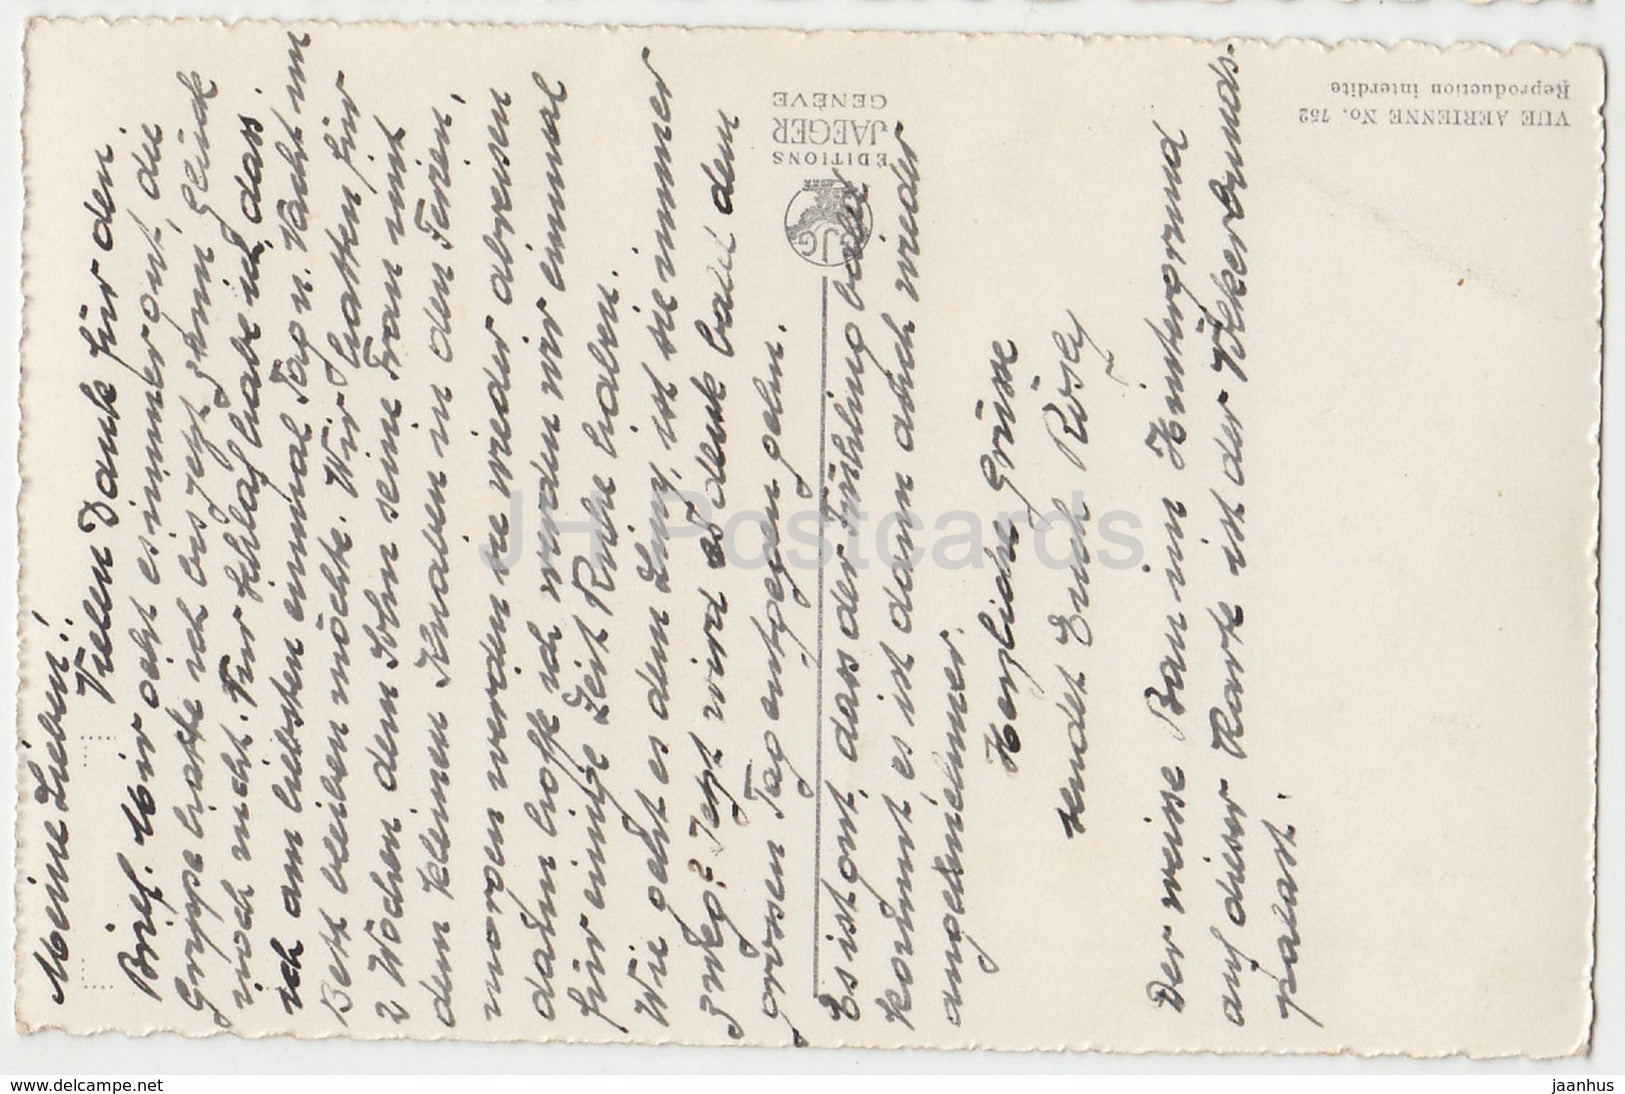 Meine Lieben!
Vielen Dank für den
Brief. Mir geht es immer gut, die
Grippe hatte ich bis jetzt zum Glück
noch nicht. Für Schlaf habe ich, dass
ich am liebsten einmal Tag u. Nacht im
Bett bleiben möchte. Wir hatten für
2 Wochen dem Sohn seine Frau mit
dem kleinen Knaben in den Ferien,
morgen werden sie wieder abreisen
dann hoffe ich werden wir einmal
für einige Zeit Ruhe haben.
Wie geht es dem Liny, ist sie immer
zweg? Jetzt wird es denk bald dem
grossen Tag entgegen gehn.
Es ist gut, dass der Frühling bald
kommt, es ist dann auch wieder
angenehmer.
Herzliche Grüsse
sendet Euch Rösly
Der weisse Bau im Hintergrund
auf dieser Karte ist der Völkerbunds-
palast.
ÉDITIONS
JAEGER
GENÈVE
JG
VUE AERIENNE No. 752
Reproduction interdite
JH Postcards
www.delcampe.net
jaanhus